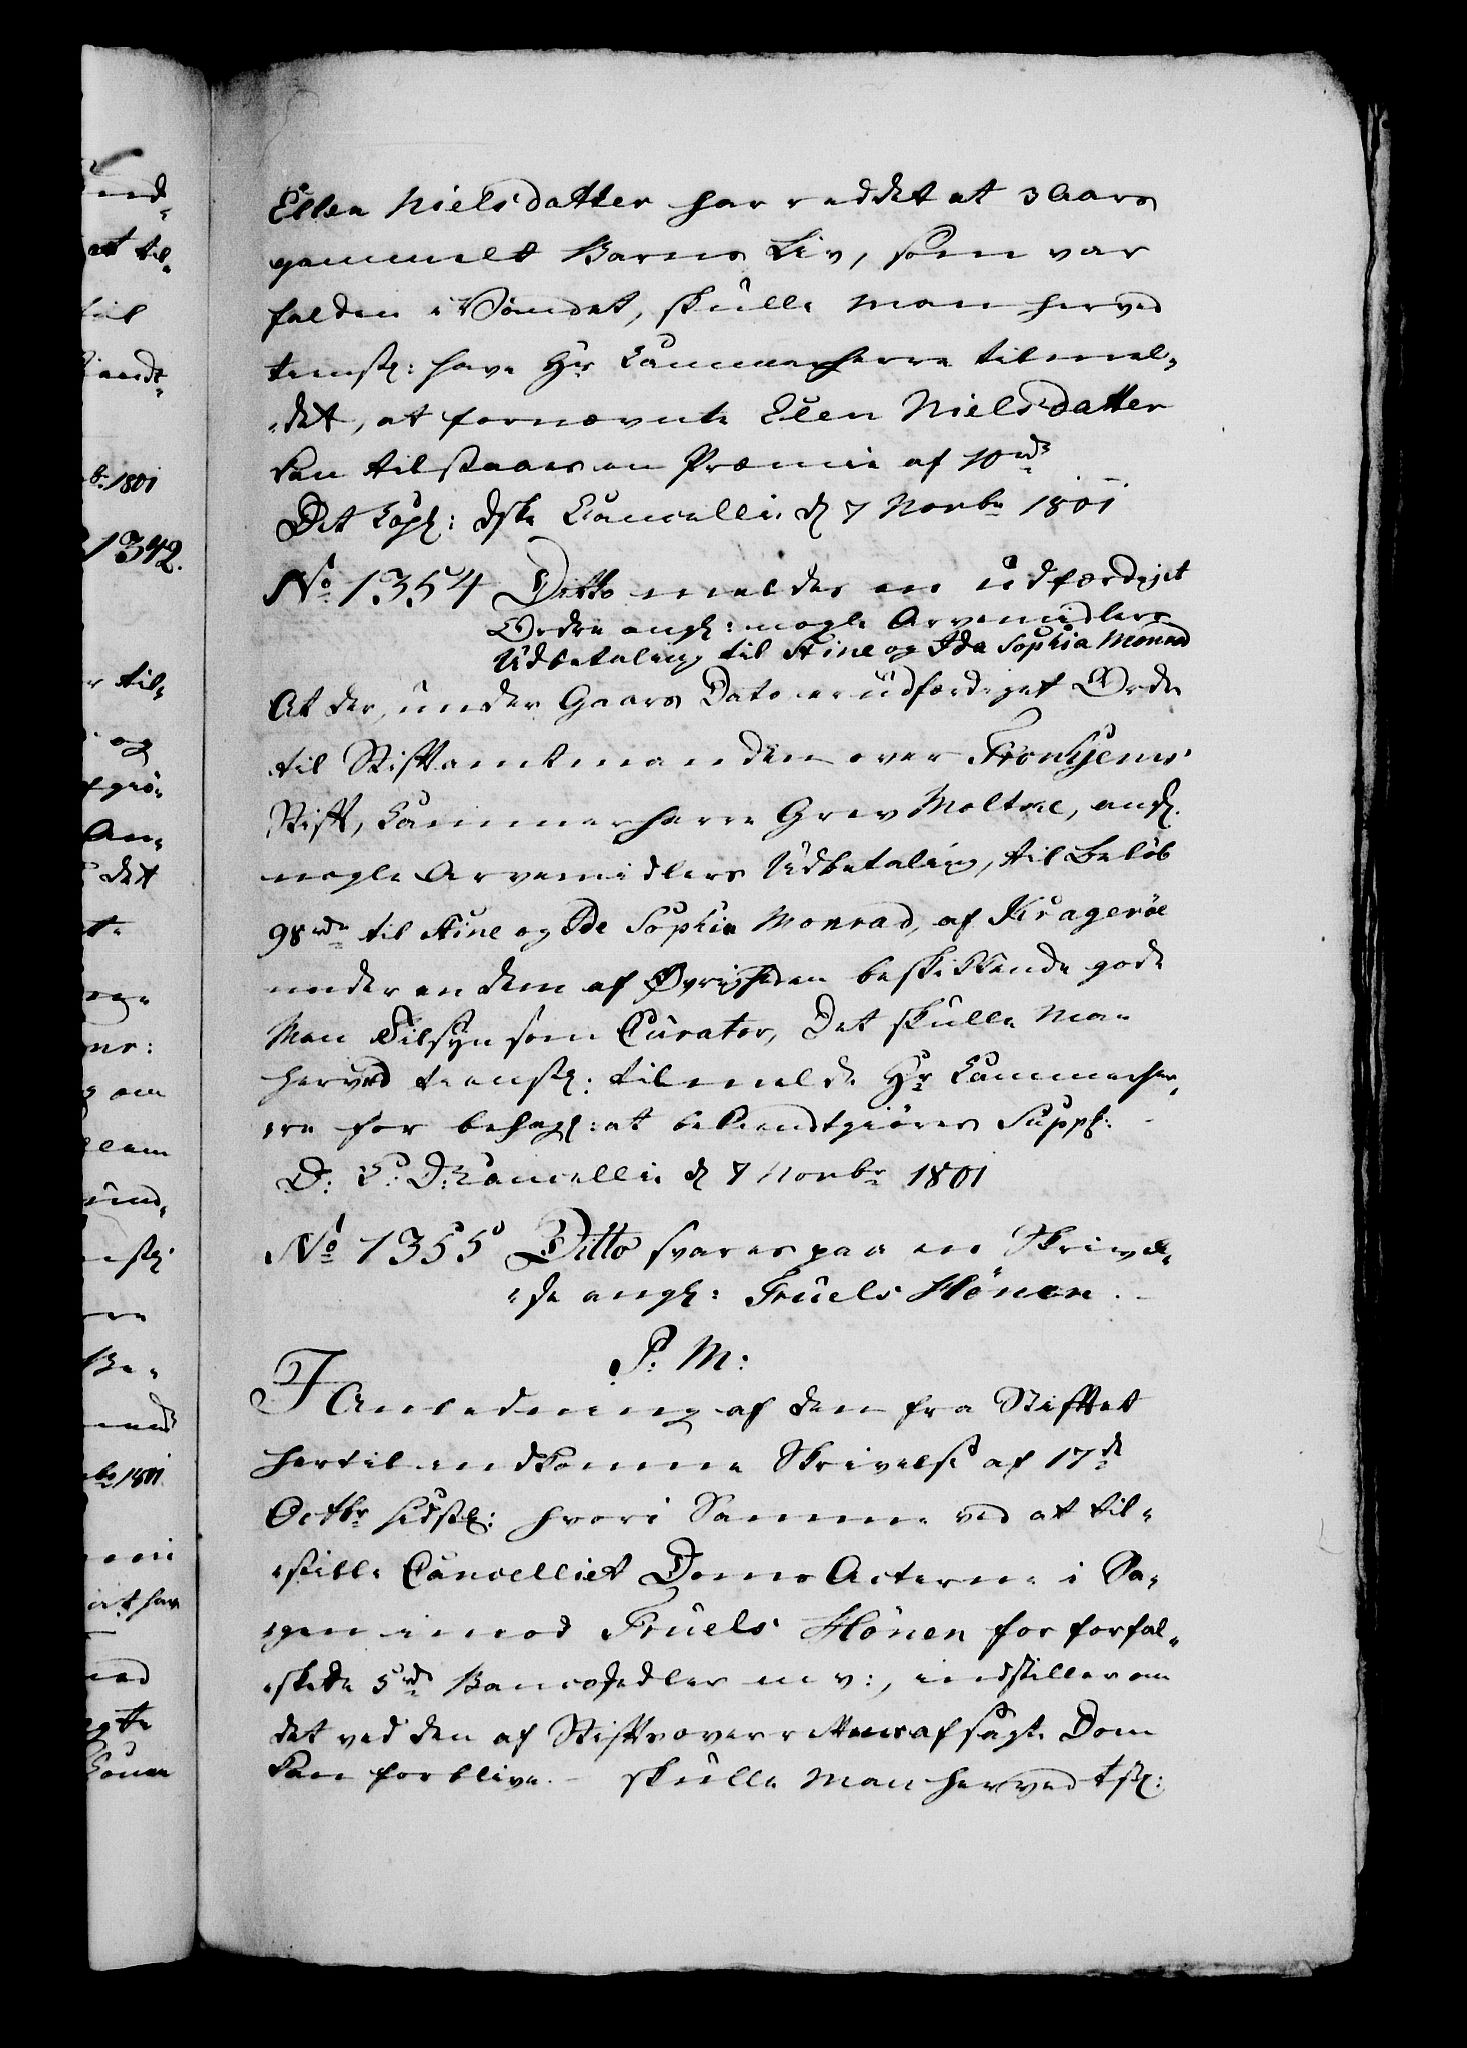 Ellen Nielsdatter har reddet et 3 Aars
gammelt Barns Liv, som var
falden i Vandet, skulle man herved
tienstl: have Hr Kammerherre tilmel-
det, at fornævnte Elen Nielsdatter
kan tilstaaes en Præmie af 10 rd
Det Kgl: dske Cancellie d 7 Novbr 1801
No 1354 Ditto meldes en udfærdiget
Ordre angl: nogle Arvemidlers
Udbetaling til Stine og Ida Sophia Monrad
At der under Gaars Dato er udfærdiget Ordre
til Stiftamtmanden over Tronhjems
Stift, Kammerherre Grev Moltke, angl.
nogle Arvemidlers Udbetaling, til Beløb
98 rdr til Stine og Ide Sophia Monrad, af Kragerøe
under en dem af Øvrigheden beskikkende gode
Man Tilsyn som Curator, Det skulle Man
herved tienstl: tilmelde Hr Kammerher-
re for behagl: at bekiendtgiøres Suppl:
D: K: D: Cancellie d 7 Novbr 1801
No 1355 Ditto svares paa en Skrivel-
se angl: Truels Hönen.
P. M:
I Anledning af den fra Stiftet
hertil indkomne Skrivelse af 17de
Octbr sidstl: hvori Samme ved at til-
stille Cancelliet Doms Acterne i Sa-
gen imod Truels Hönen for forfal-
skede 5 rdr Bancosedler m v:, indstiller om
det ved den af Stiftsoverretten afsagte Dom
kan forblive. - skulle Man herved tstl: